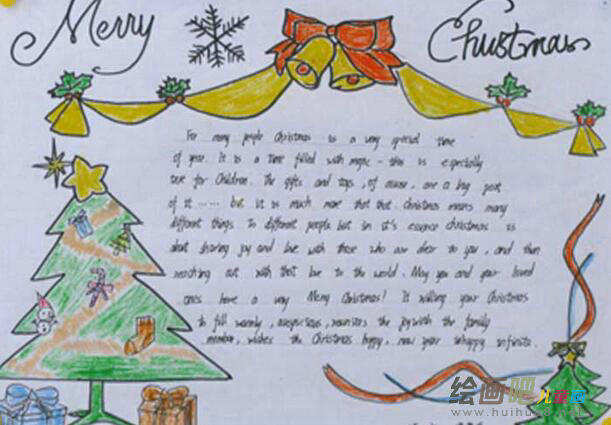 Merry Christmas
For many people Christmas is a very special time
of year. It is a time filled with magic - this is especially
true for Children. The gifts and toys, of course, are a big part
of it ...... but it is much more that that. Christmas means many
different things to different people but in it's essence christmas is
about sharing joy and love with those who are dear to you, and then
reaching out with that love to the world. May you and your loved
ones have a very Merry Christmas! It willing your Christmas
to fill warmly, auspicious, reunites the joy with the family
member, wishes the Christmas happy, new year unhappy infinite.
绘画吧
www.huihua8.net